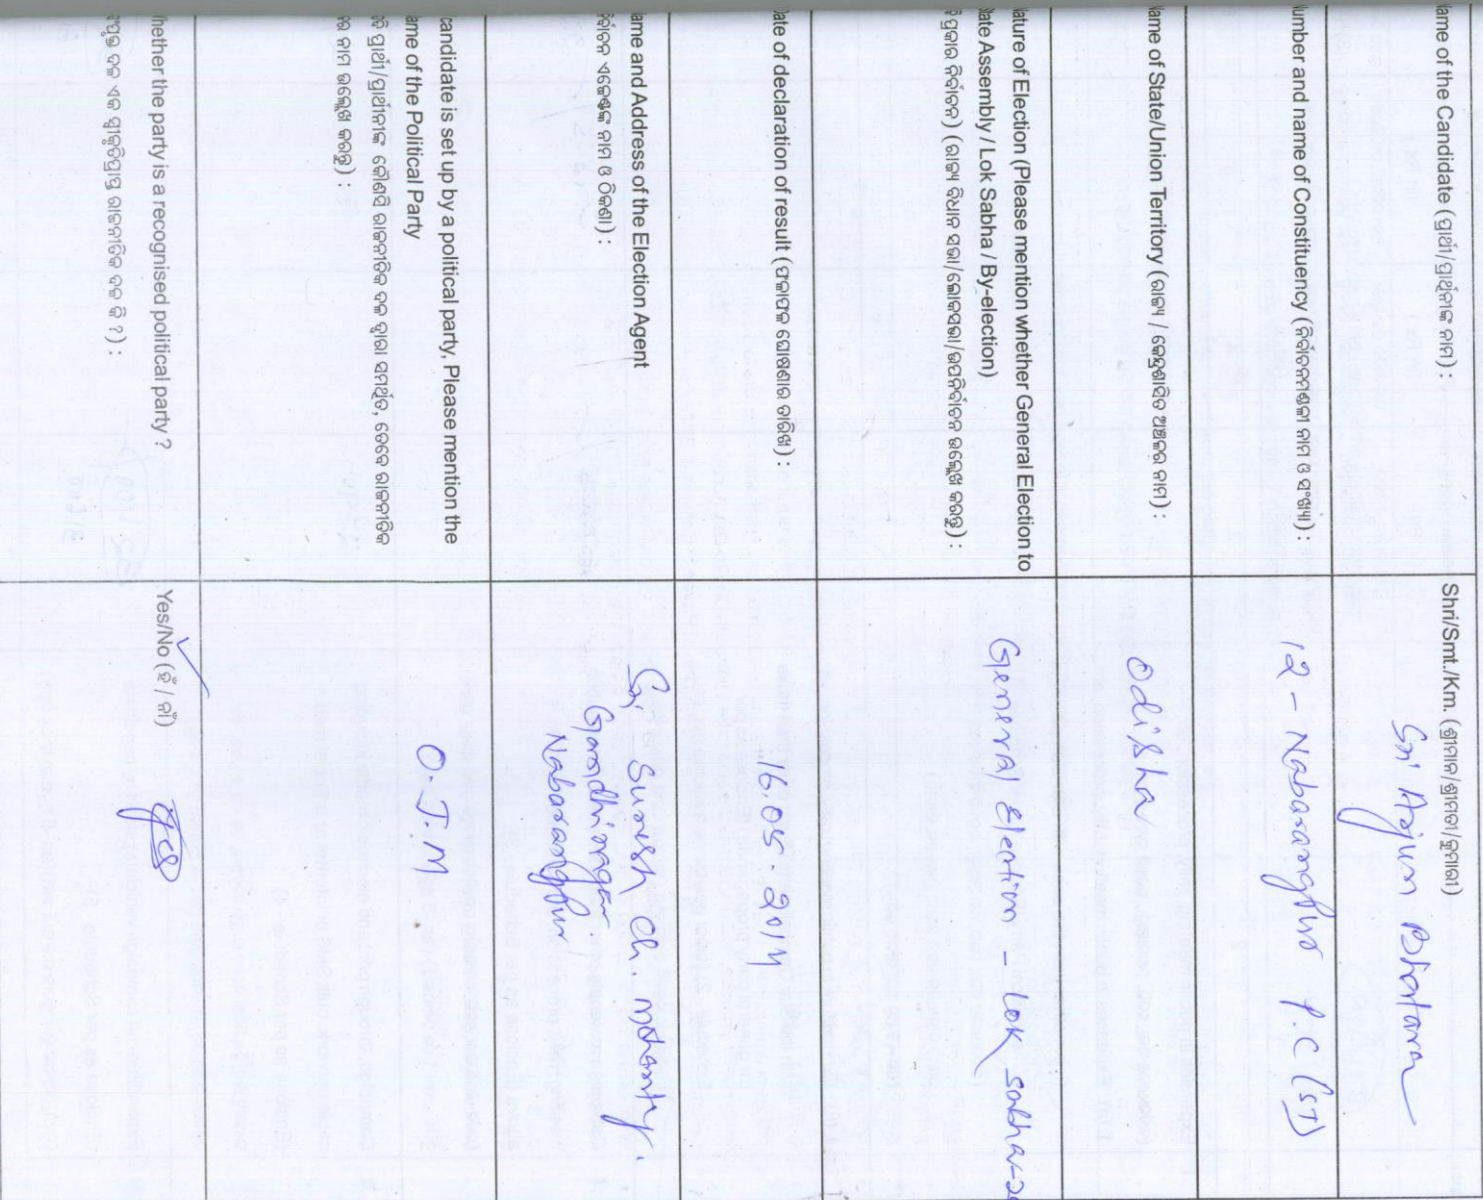 ame of the Candidate (ପ୍ରାର୍ଥୀ/ପ୍ରାର୍ଥିନୀଙ୍କ ନାମ) :
Shri/Smt./Km. (ଶ୍ରୀମାନ/ଶ୍ରୀମତୀ/କୁମାରୀ)
Sri Arjun Bhatara
umber and name of Constituency (ନିର୍ବାଚନମଣ୍ଡଳୀ ନାମ ଓ ସଂଖ୍ୟା) :
12 - Nabarangpur PC (ST)
ame of State/Union Territory (ରାଜ୍ୟ / କେନ୍ଦ୍ରଶାସିତ ଅଞ୍ଚଳର ନାମ) :
Odisha
ature of Election (Please mention whether General Election to
tate Assembly / Lok Sabha / By-election)
ି ପ୍ରକାର ନିର୍ବାଚନ) (ରାଜ୍ୟ ବିଧାନ ସଭା/ଲୋକସଭା/ଉପନିର୍ବାଚନ ଉଲ୍ଲେଖ କରନ୍ତୁ) :
General Election - Lok Sabha - 20
ate of declaration of result (ଫଳାଫଳ ଘୋଷଣାର ତାରିଖ) :
16.05.2014
ame and Address of the Election Agent
ର୍ବାଚନ ଏଜେଣ୍ଟଙ୍କ ନାମ ଓ ଠିକଣା) :
Sri Suresh Ch. Mohanty.
Gandhinagar
Nabarangpur
candidate is set up by a political party, Please mention the
ame of the Political Party
ଦି ପ୍ରାର୍ଥୀ/ପ୍ରାର୍ଥୀମାନେ କୌଣସି ରାଜନୀତିକ ଦଳ ଦ୍ୱାରା ସମର୍ଥିତ, ତେବେ ରାଜନୀତିକ
ର ନାମ ଉଲ୍ଲେଖ କରନ୍ତୁ) :
O.J.M
hether the party is a recognised political party ?
ମ୍ପୃକ୍ତ ଦଳ ଏକ ସ୍ୱୀକୃତିପ୍ରାପ୍ତ ରାଜନୀତିକ ଦଳ କି ?) :
Yes/No (ହଁ / ନାଁ)
Yes